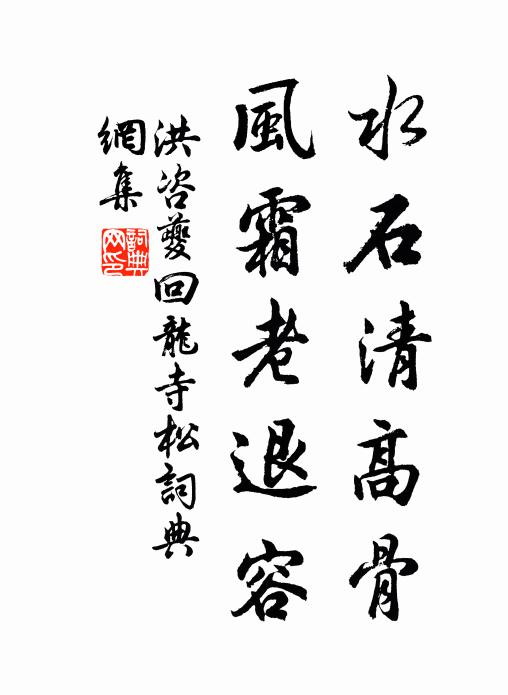 水石清高骨
風霜老退容
洪咨夔回龍寺松詞典
網集
詞典
网印